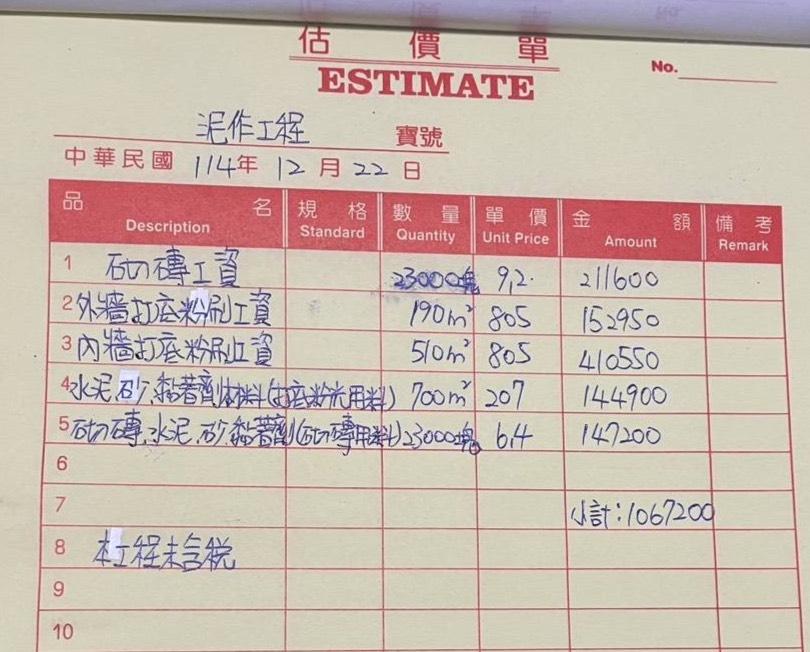 估價單
ESTIMATE
No.
泥作工程 寶號
中華民國 114年 12月 22日
品名 規格 數量 單價 金額 備考
Description Standard Quantity Unit Price Amount Remark
1 砌磚工資 23000塊 9.2 211600
2 外牆打底粉刷工資 190m² 805 152950
3 內牆打底粉刷工資 510m² 805 410550
4 水泥.砂.黏著劑材料(打底粉光用料) 700m² 207 144900
5 砌磚.水泥.砂.黏著劑(砌磚用料) 23000塊 6.4 147200
6
7 小計:1067200
8 本工程未含稅
9
10